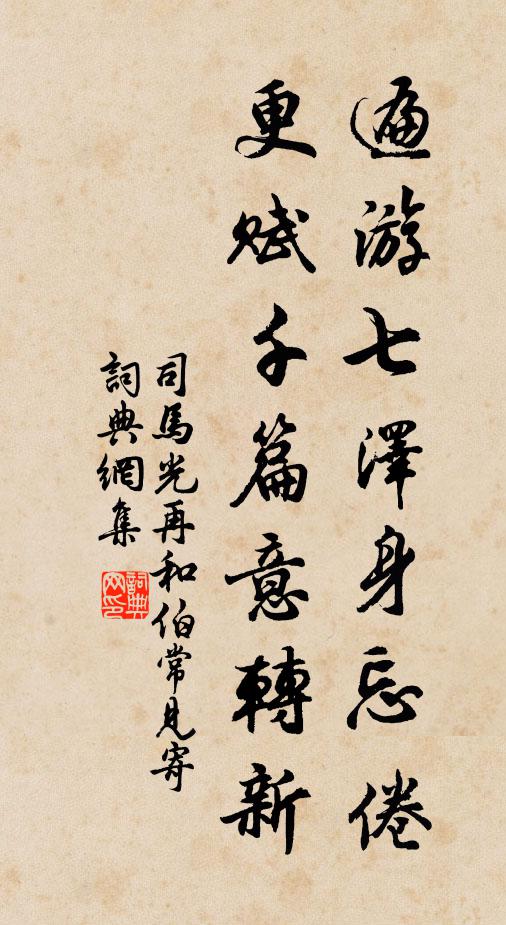 遍游七澤身忘倦
更賦千篇意轉新
司馬光再和伯常見寄
詞典網集
詞典网印